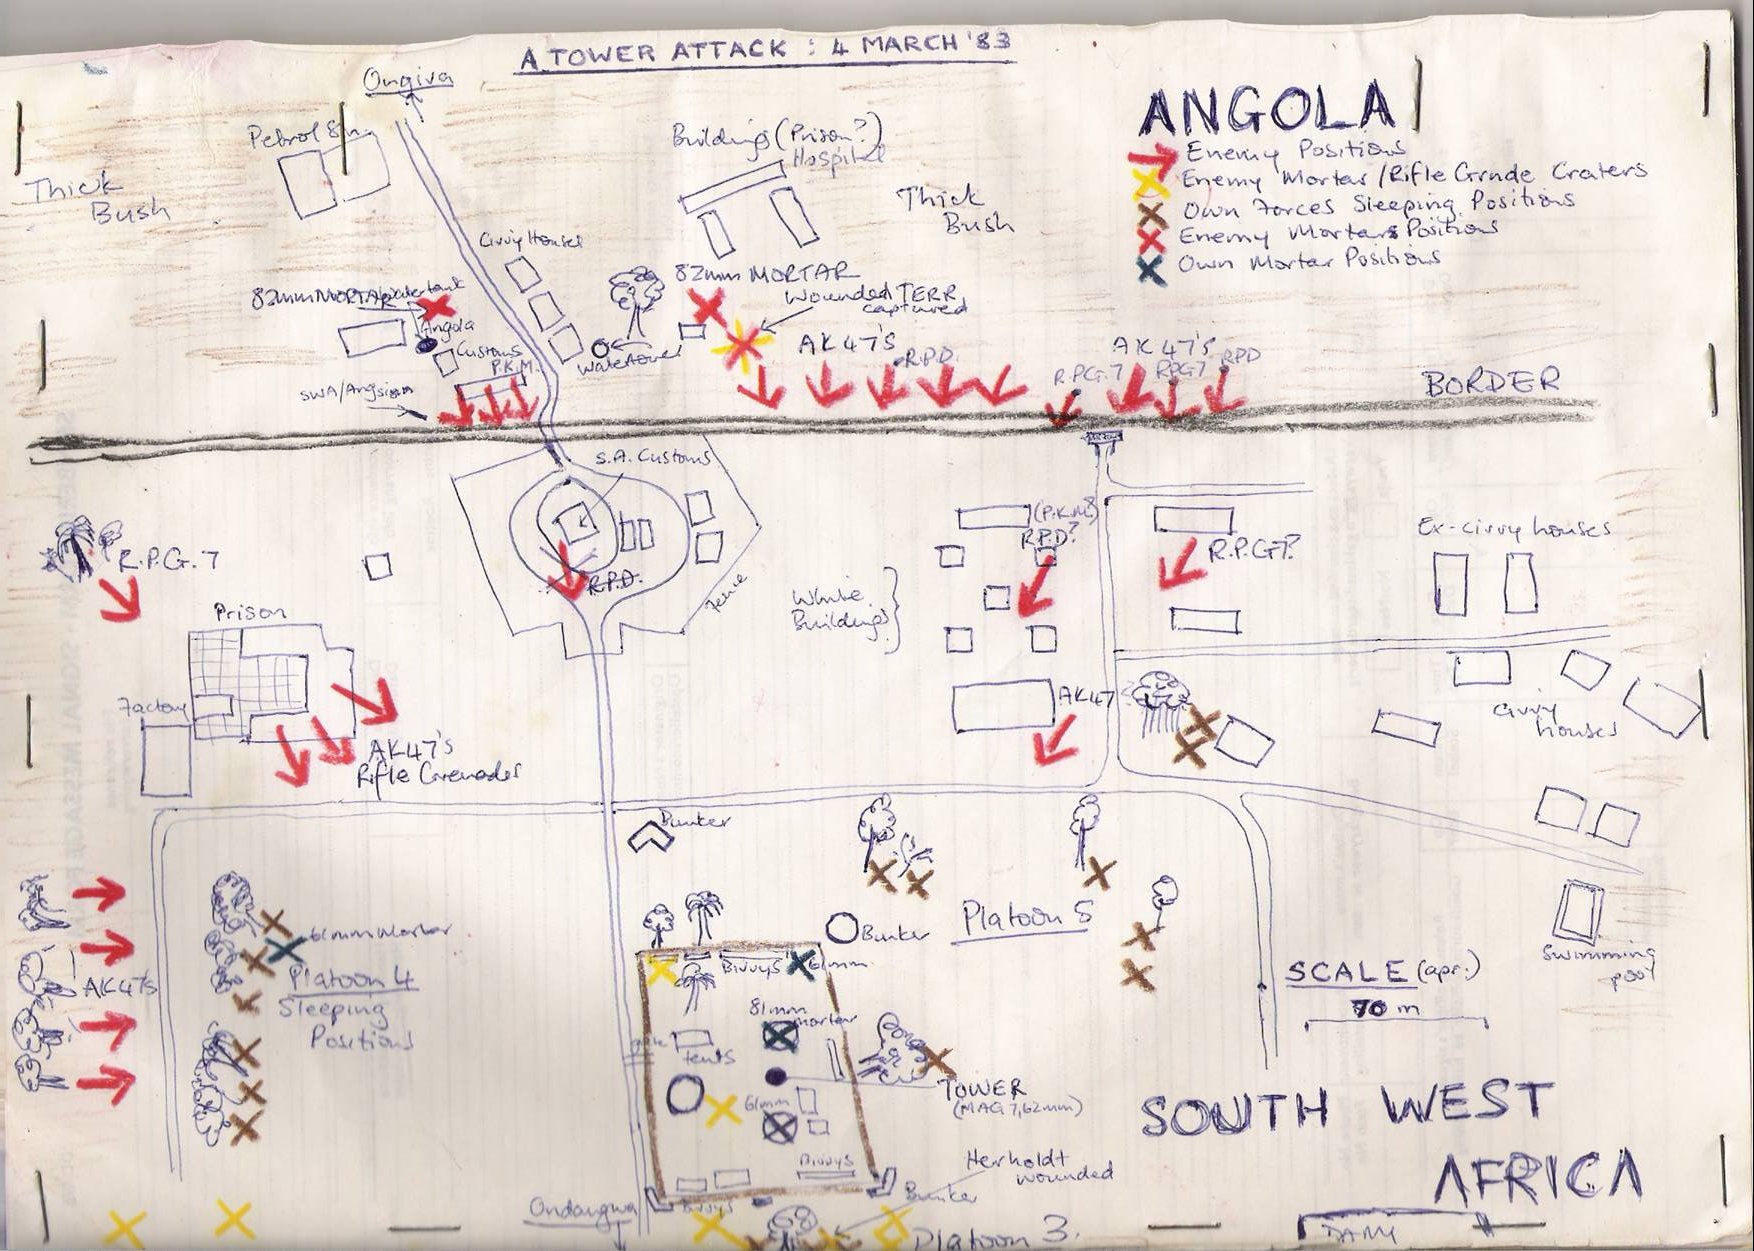 A TOWER ATTACK : 4 MARCH '83
Ongiva
ANGOLA
Enemy Positions
Enemy Mortar/Rifle Grnde Craters
Own Forces Sleeping Positions
Enemy Mortars Positions
Own Mortar Positions
Petrol Stn
Buildings (Prison?)
Hospital
Thick
Bush
Thick
Bush
Civvy Houses
82mm MORTAR
Watertank
82mm MORTAR
Wounded TERR
captured
Angola
Customs
P.K.M.
Watertower
AK47's
R.P.D.
AK47's
R.P.G.7
RPG7
RPD
SWA/Angolan
BORDER
S.A. Customs
R.P.G.7
R.P.D.
fence
(P.K.M)
R.P.D?
R.P.G7?
Ex-civvy houses
White
Buildings
Prison
Factory
AK47's
Rifle Grenades
AK47
Civvy
houses
Bunker
Bunker
Platoon 5
61mm Mortar
Platoon 4
Sleeping
Positions
AK47s
Bivvys
61mm
81mm
mortar
gate
Tents
61mm
TOWER
(MAG 7,62mm)
SCALE (apr.)
70m
Swimming
pool
SOUTH WEST
AFRICA
Herholdt
wounded
Bivvys
Bunker
Bivvys
Ondangwa
Platoon 3.